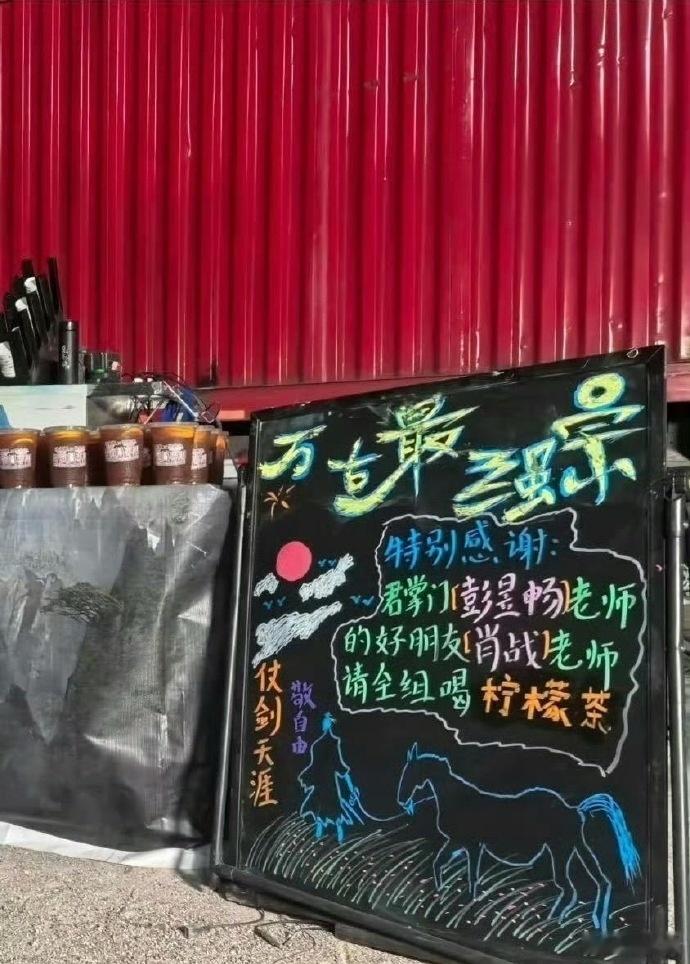 万古最强宗
特别感谢:
君掌门[彭昱畅]老师
的好朋友[肖战]老师
请全组喝柠檬茶
仗剑天涯
敬自由